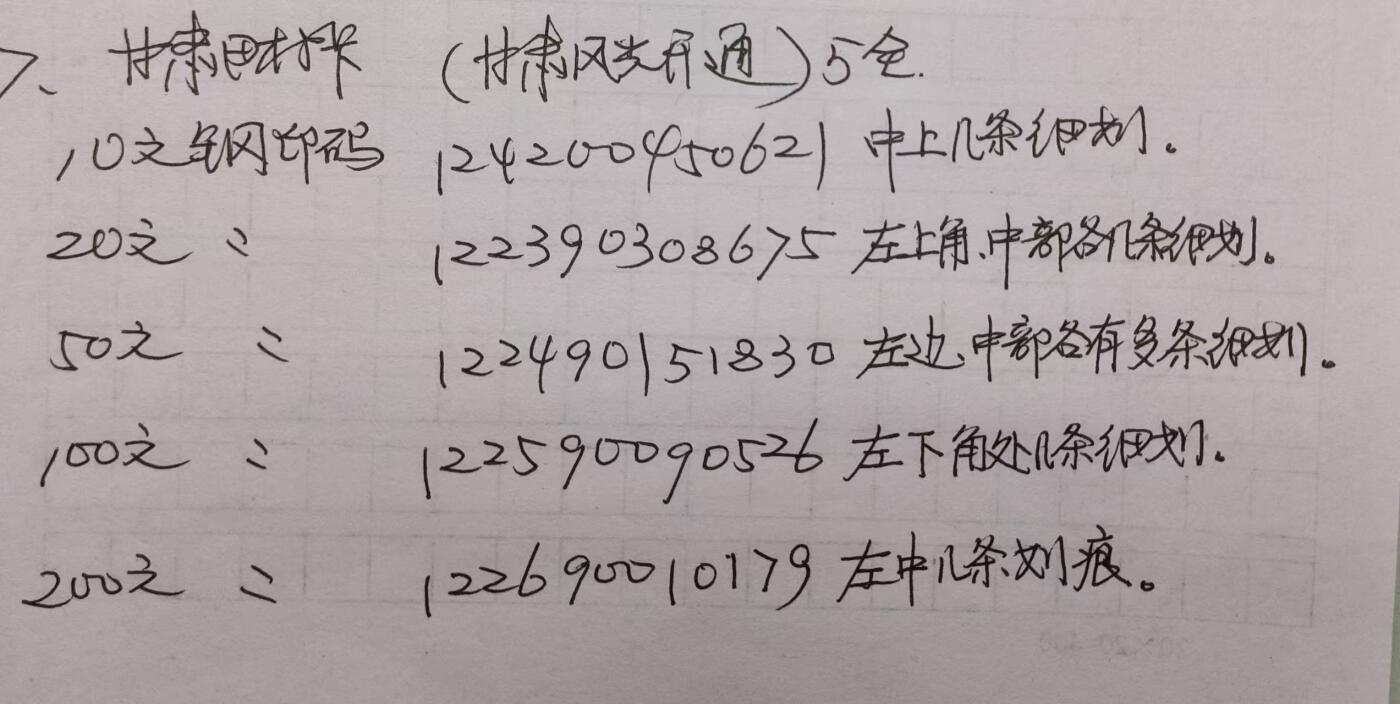 7、甘肃田村卡 (甘肃风光开通)5全.
10元钢印码 124200450621 中上几条细划。
20元 〃 122390308675 左上角、中部各几条细划。
50元 〃 122490151830 左边、中部各有多条细划。
100元 〃 122590090526 左下角处几条细划.
200元 〃 122690010179 左中几条划痕。